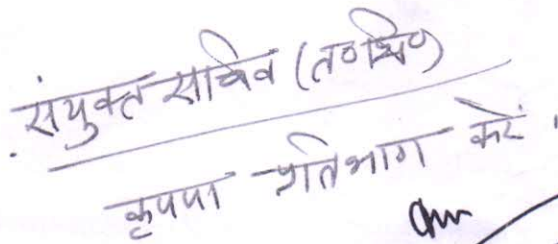 संयुक्त सचिव (त०शि०)
कृपया प्रतिभाग करें।